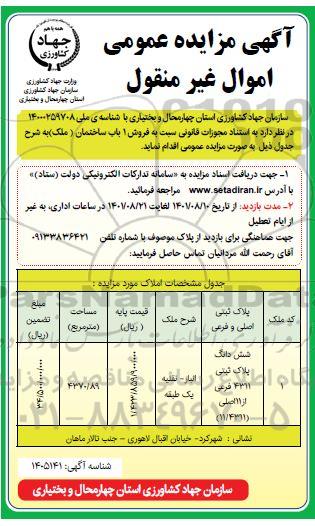 آگهی مزایده عمومی
اموال غیر منقول
همه با هم
جهاد
کشاورزی
وزارت جهاد کشاورزی
سازمان جهاد کشاورزی
استان چهارمحال و بختیاری
سازمان جهاد کشاورزی استان چهارمحال و بختیاری با شناسه ی ملی ۱۴۰۰۰۲۵۹۷۰۸
در نظر دارد به استناد مجوزات قانونی سبت به فروش ۱ باب ساختمان ( ملک)به شرح
جدول ذیل به صورت مزایده عمومی اقدام نماید.
۱- جهت دریافت اسناد مزایده به «سامانه تدارکات الکترونیکی دولت (ستاد)»
با آدرس www.setadiran.ir مراجعه فرمائید.
۲- مدت بازدید: از تاریخ ۱۴۰۷/۰۸/۱۰ لغایت ۱۴۰۷/۰۸/۲۱ در ساعات اداری، به غیر
از ایام تعطیل
جهت هماهنگی برای بازدید از پلاک موصوف با شماره تلفن ۰۹۱۳۳۸۳۶۴۲۱
آقای رحمت الله مردانیان تماس حاصل فرمایید:
جدول مشخصات املاک مورد مزایده :
کد ملک
پلاک ثبتی اصلی و فرعی
شرح ملک
قیمت پایه ( ریال)
مساحت (مترمربع)
مبلغ تضمین (ریال)
۱
شش دانگ
پلاک ثبتی
۴۳۱۱ فرعی
از۱۱اصلی
(۱۱/۴۳۱۱)
انبار - نقلیه
یک طبقه
۴۳۷۰/۸۹
نشانی : شهرکرد- خیابان اقبال لاهوری – جنب تالار ماهان
شناسه آگهی: ۱۴۰۵۱۴۱
سازمان جهاد کشاورزی استان چهارمحال و بختیاری